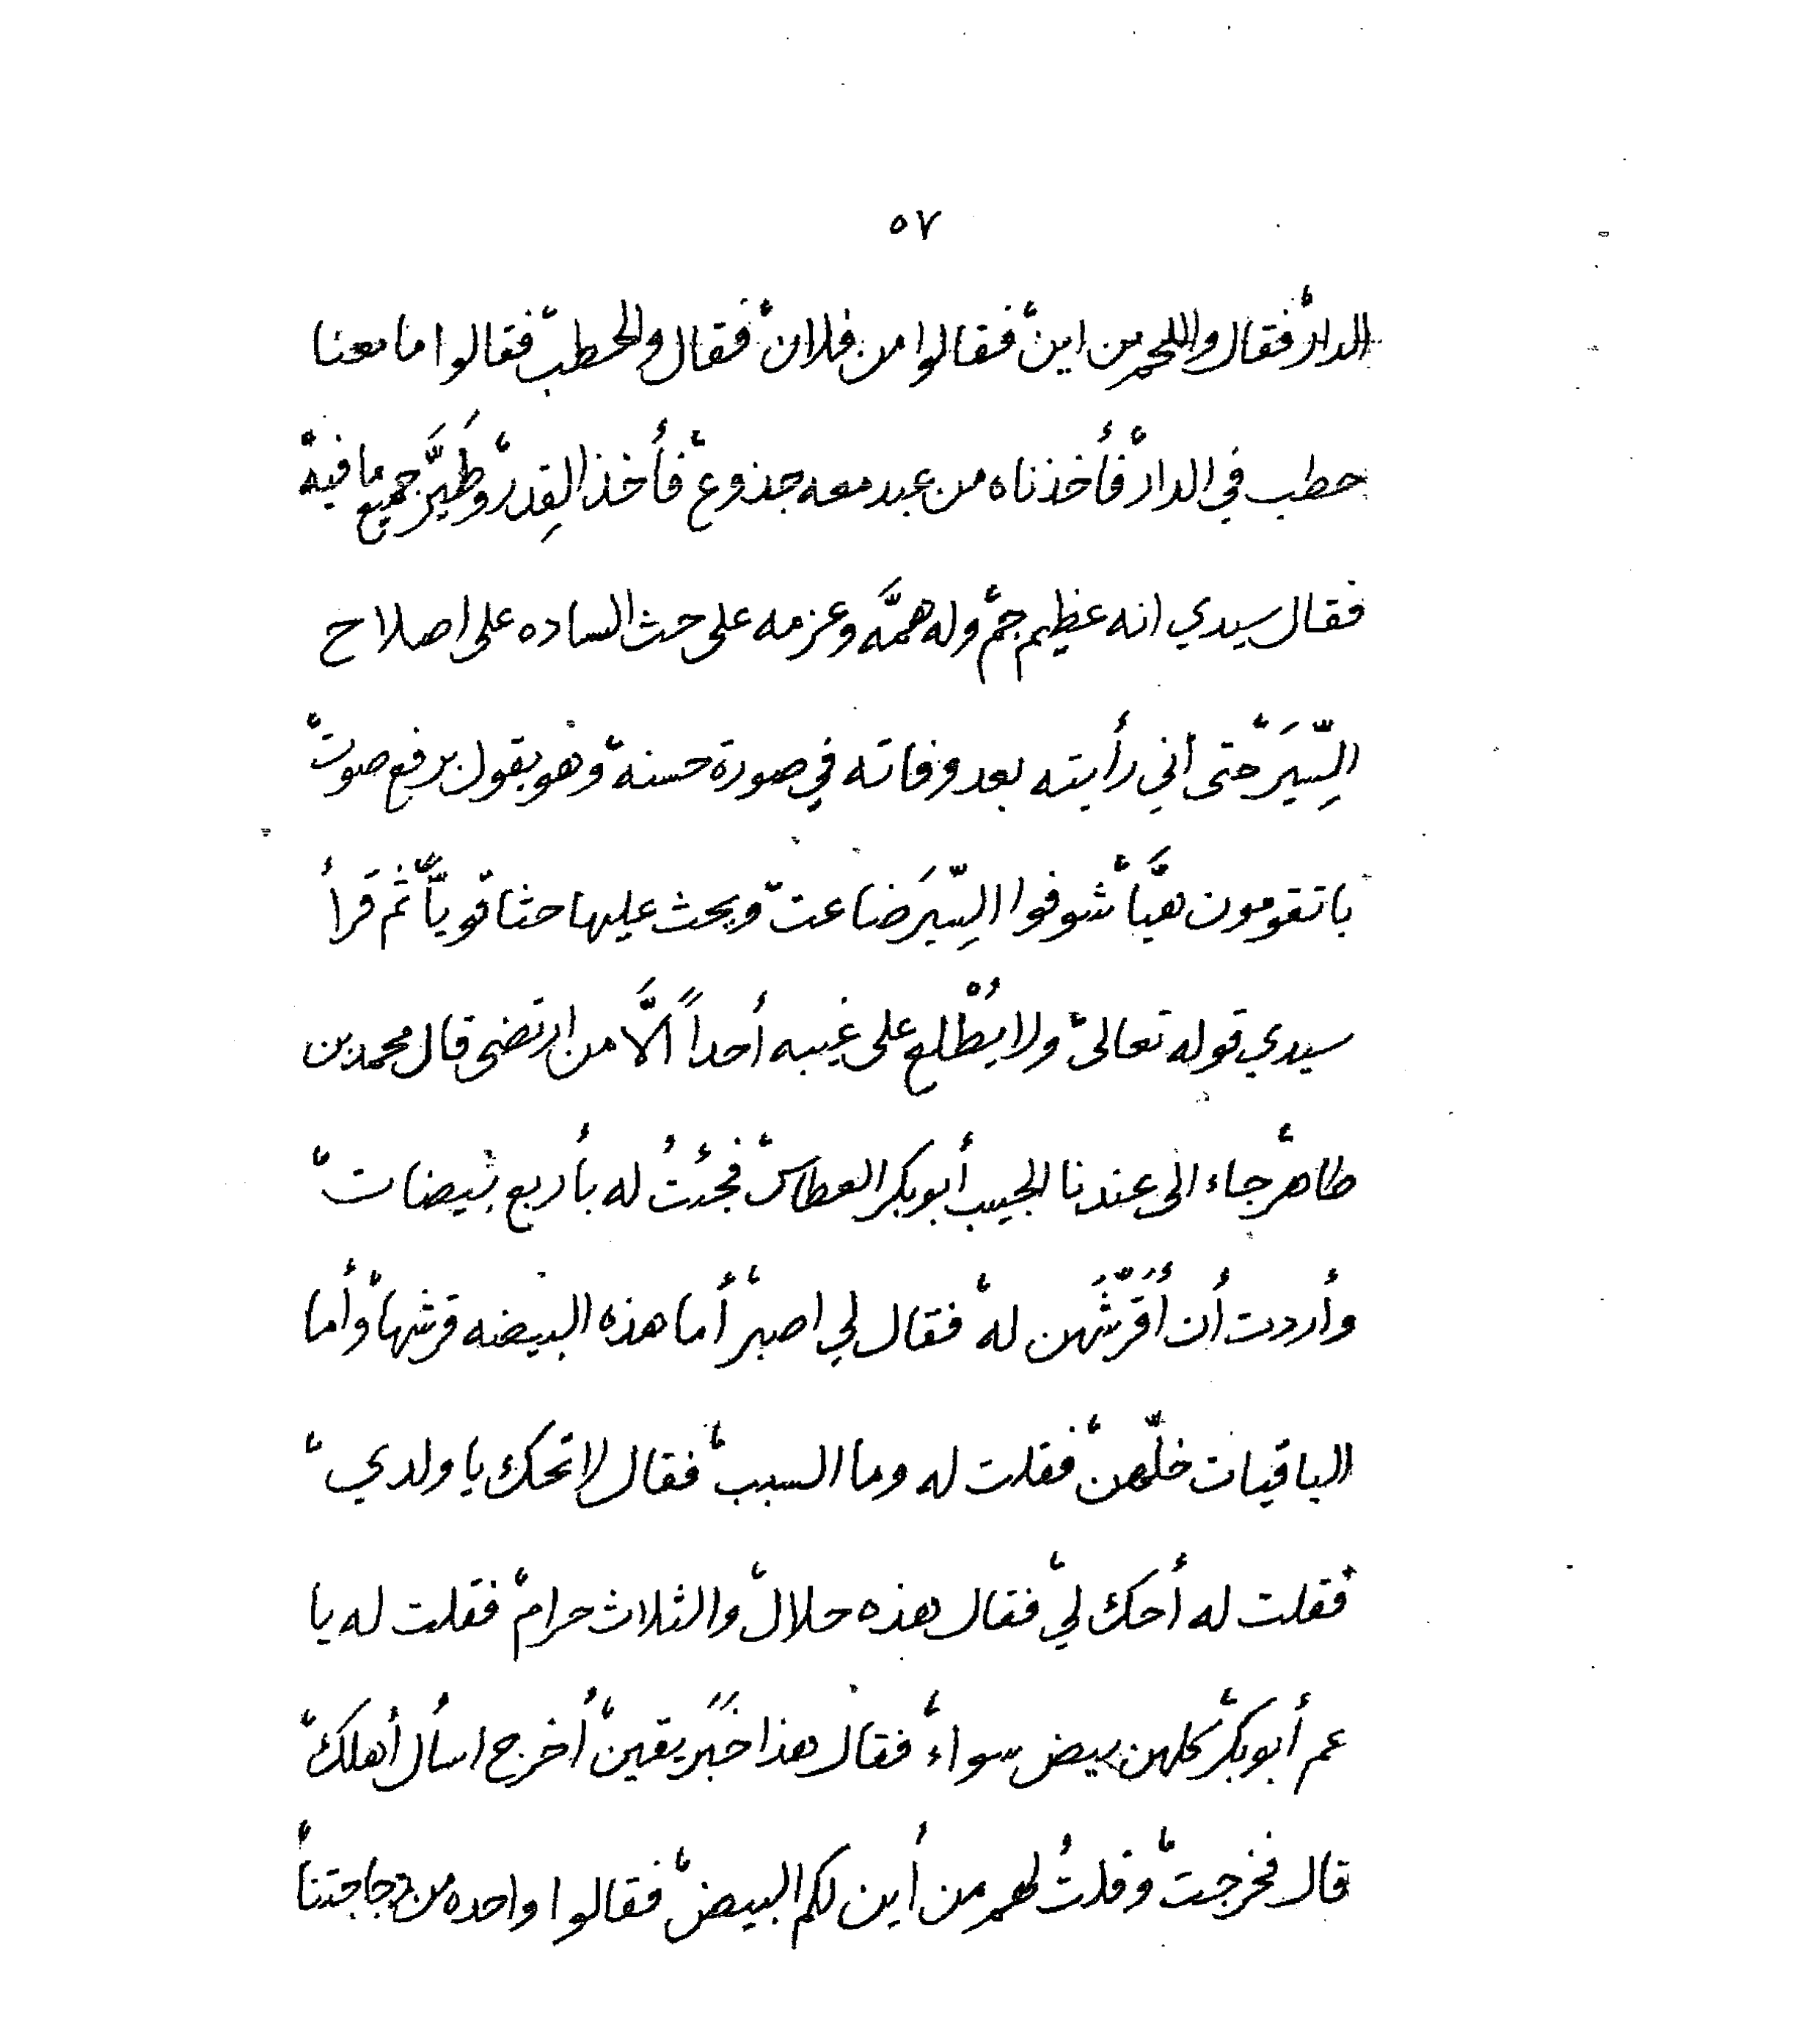 ٥٧
الدار فقال واللحم من اين فقالوا من فلان فقال والحطب فقالوا ما معنا
حطب في الدار فأخذناه من عبد معه جذوع فأخذ القِدر وطَيَّر جميع ما فيه
فقال سيدي انه عظيم جم وله همَّه وعزمه على حث الساده على اصلاح
السِّيَر حتى أني رأيته بعد وفاته في صورة حسنة وهو يقول برفع صوت
باتقومون هيَّا شوفوا السِّيَر ضاعت ويحث عليها حثا قوياً ثم قرأ
سيدي قوله تعالى ولا يُطْلع على غيبه أحداً الَّا من ارتضى قال محمد بن
طاهر جاء الى عندنا الحبيب أبوبكر العطاس فجئتُ له بأربع بيضات
وأردت أن أُقَرِّشَهن له فقال لي اصبر أما هذه البيضه قرشها وأما
الباقيات خلّهن فقلت له وما السبب فقال لا تحك يا ولدي
فقلت له أحك لي فقال هذه حلال والثلاث حرام فقلت له يا
عم أبوبكر كلهن بيض سواء فقال هذا خبرً يقين أخرج اسأل أهلك
قال فخرجت وقلتُ لهم من أين لكم البيض فقالوا واحده من دجاجتنا